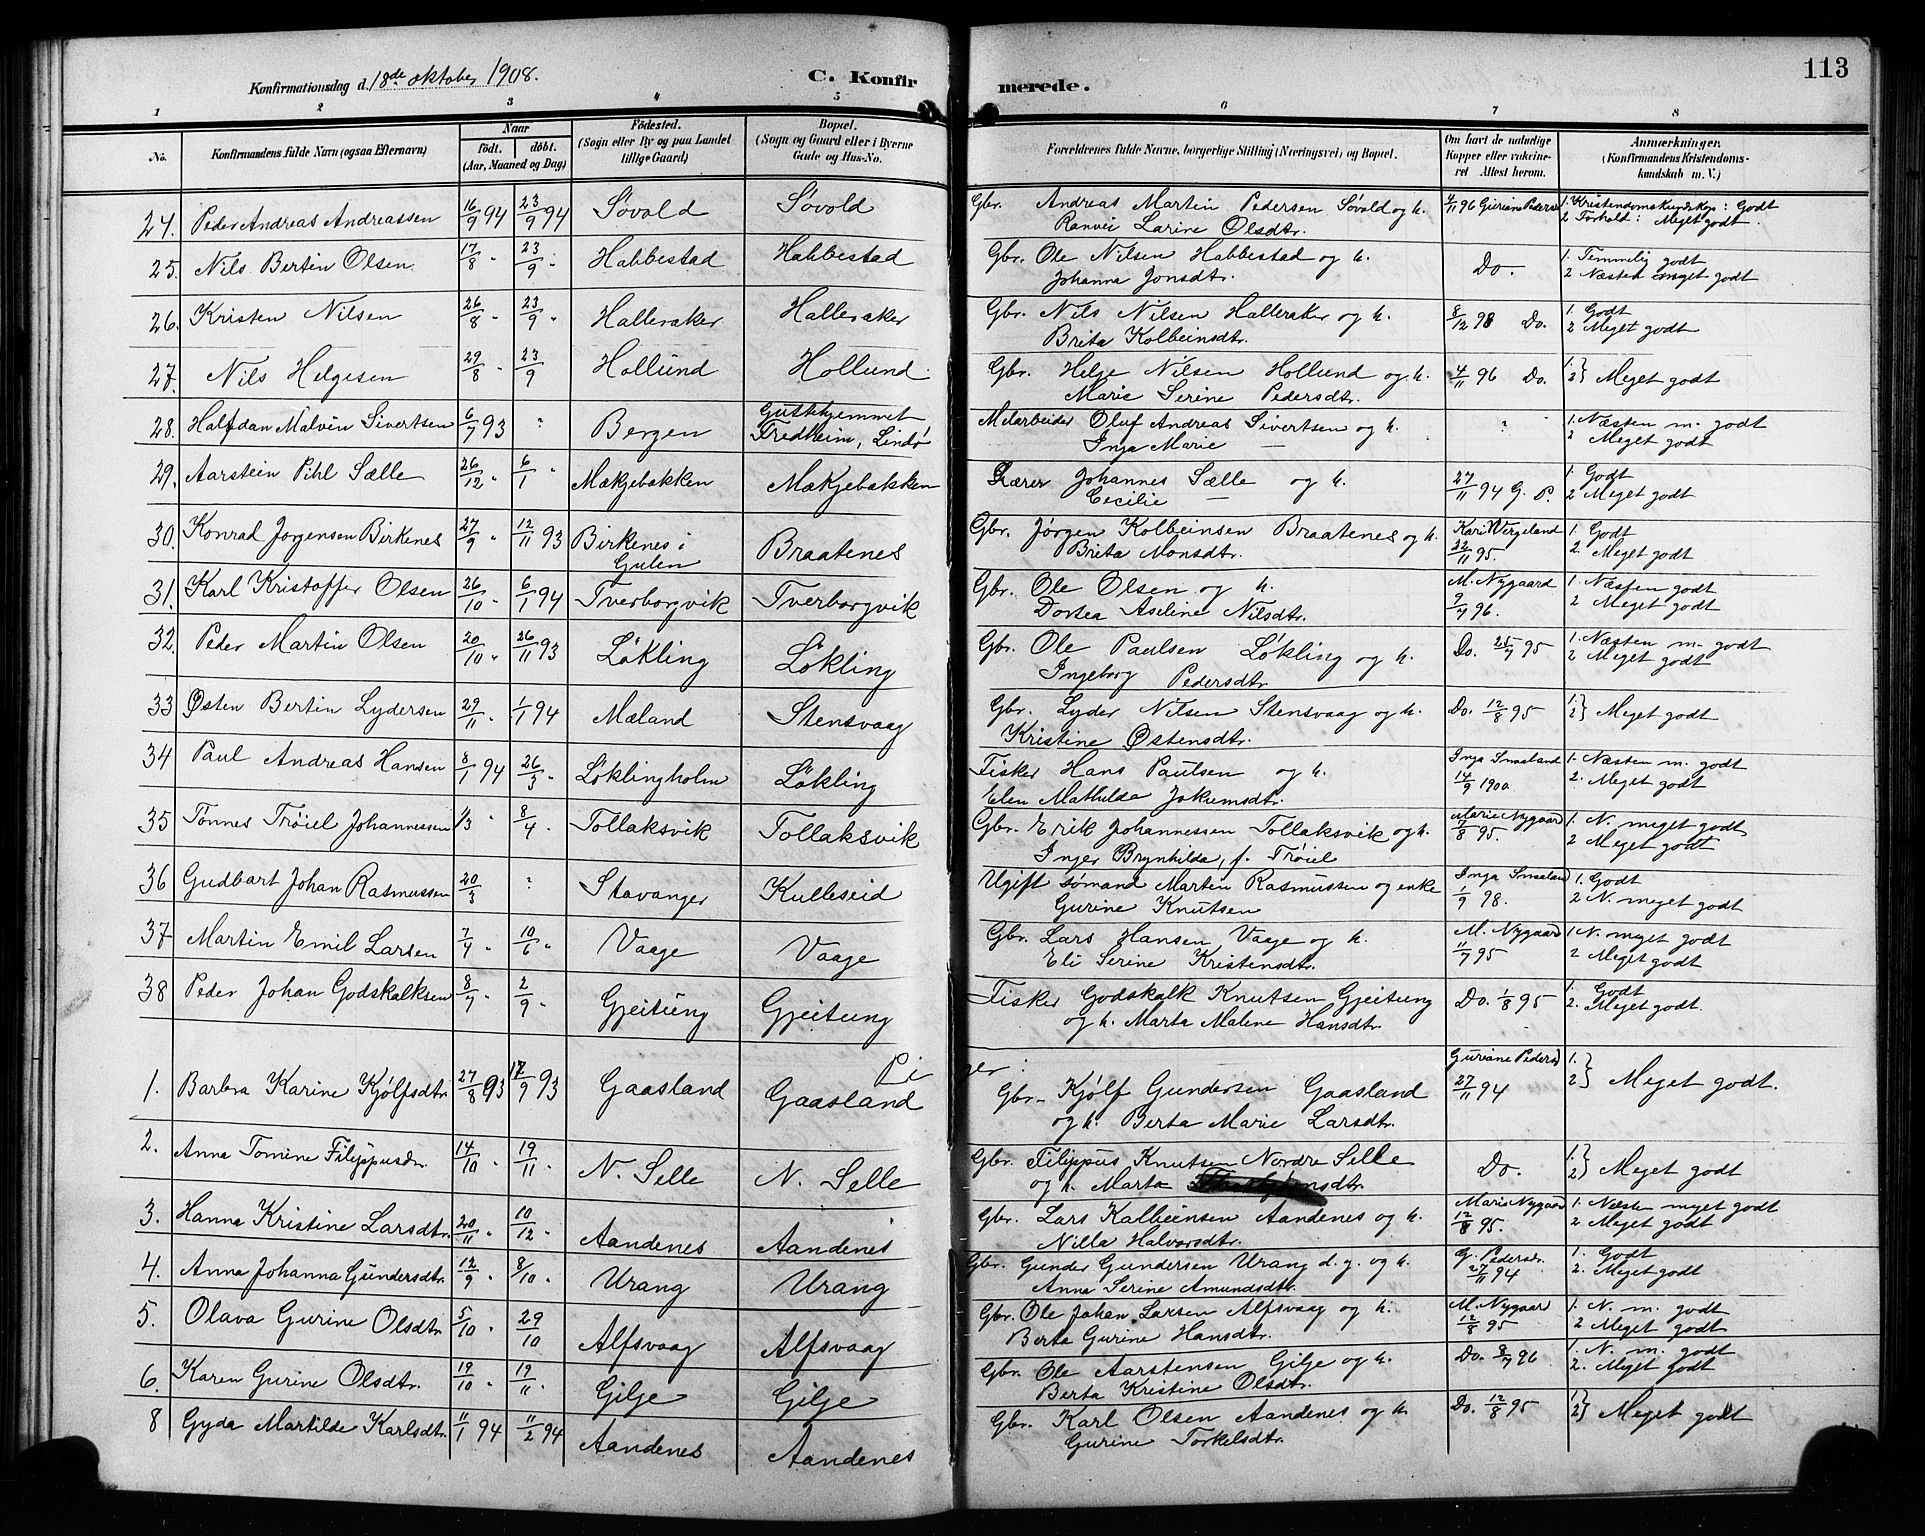 113
Konfirmationsdag d. 18de oktober 1908.
C. Konfirmerede.
1 2 3 4 5 6 7 8
No.
Konfirmandens fulde Navn (ogsaa Efternavn)
Naar
født. døbt.
(Aar, Maaned og Dag)
Fødested.
(Sogn eller By og paa Landet
tillige Gaard)
Bopæl.
(Sogn og Gaard eller i Byerne
Gade og Hus-No.
Forældrenes fulde Navne, borgerlige Stilling (Næringsvei) og Bopæl.
Om havt de naturlige
Kopper eller vakcine-
ret Attest herom.
Anmærkninger.
(Konfirmandens Kristendoms-
kundskab m. V.)
24. Peder Andreas Andreassen 16/9 94 23/9 94 Søvold Søvold Gbr. Andreas Martin Pedersen Søvold og h. 4/11 96 Guriane Peders 1. Kristendomskundskap: Godt
Ranvei Larine Olsdtr. 2 Forhold: Meget godt.
25. Nils Bertin Olsen 17/8 " 23/9 " Habbestad Habbestad Gbr. Ole Nilsen Habbestad og h. Do. 1. Temmelig godt
Johanna Jonsdtr. 2 Næsten meget godt
26. Kristen Nilsen 26/8 " 23/9 " Halleraker Halleraker Gbr. Nils Nilsen Halleraker og h. 8/12 98 Do. 1. Godt
Brita Kolbeinsdtr. 2 Meget godt
27. Nils Helgesen 29/8 " 23/9 Hollund Hollund Gbr. Helge Nilsen Hollund og h. 4/11 96 Do. 1. 2} Meget godt
Marie Serine Pedersdtr.
28. Halfdan Malvin Sivertsen 6/7 93 " Bergen Guttehjemmet Fredheim, Lindø Melarbeider Oluf Andreas Sivertsen og h. " 1. Næsten m. godt
Inga Marie — 2 Meget godt
29. Aarstein Pihl Sælle 26/12 " 6/1 " Mækjebakken Mækjebakken Lærer Johannes Sælle og h. 27/11 94 G. P. 1. Godt
Cecilie — 2 Meget godt
30. Konrad Jørgensen Birkenes 27/9 " 12/11 93 Birkenes i Gulen Braatenes Gbr. Jørgen Kolbeinsen Braatenes og h. Kari Vergeland 1. Godt
Brita Monsdtr. /11 95. 2. Meget godt
31. Karl Kristoffer Olsen 26/10 " 6/1 94 Tverborgvik Tverborgvik Gbr. Ole Olsen og h. M. Nygaard 1. Næsten godt
Dortea Aseline Nilsdtr. 9/7 96. 2 Meget godt
32. Peder Martin Olsen 20/10 " 26/11 93 Løkling Løkling Gbr. Ole Paulsen Løkling og h. Do. 25/7 95 1. Næsten m. godt
Ingeborg Pedersdtr. 2 Meget godt
33 Østen Bertin Lydersen 29/11 " 1/1 94 Mæland Stensvaag Gbr. Lyder Nilsen Stensvaag og h. Do. 12/8 95 1. 2} Meget godt
Kristine Østensdtr.
34 Paul Andreas Hansen 8/1 94 26/3 " Løklingholm Løkling Fisker Hans Paulsen og h. Inga Smaaland 1. Næsten m. godt
Elen Mathilda Jokumsdtr. 14/9 1900 2. Meget godt
35 Tønnes Trøiel Johannessen 1/3 " 8/4 " Tollaksvik Tollaksvik Gbr. Erik Johannessen Tollaksvik og h. Marie Nygaard 1. N. meget godt
Inger Brynhilda, f. Trøiel 7/8 95. 2 Meget godt
36 Gudbart Johan Rasmussen 20/3 " Stavanger Kulleseid Ugift sømand Martin Rasmussen og enke Inga Smaaland 1. Godt
Gurine Knutsen 1/9 98. 2 N. meget godt
37 Martin Emil Larsen 7/4 " 10/6 " Vaage Vaage Gbr. Lars Hansen Vaage og h. M. Nygaard 1 N. meget godt
Eli Serine Kristensdtr. 11/7 95 2 Meget godt
38 Peder Johan Godskalksen 8/7 " 2/9 " Gjeitung Gjeitung Fisker Godskalk Knutsen Gjeitung Do. 1/8 95 1. Godt
og h. Marta Malene Hansdtr. 2. Meget godt.
Piger:
1. Barbra Karine Kjølfsdtr. 27/8 93 17/9 93 Gaasland Gaasland Gbr. Kjølf Gundersen Gaasland Guriane Pedersd 1. 2} Meget godt.
og h. Berta Marie Larsdtr. 27/11 94
2. Anna Tomine Filippusdr. 14/10 " 19/11 " N. Selle N. Selle Gbr. Filippus Knutsen Nordre Selle Do. 1. 2} Meget godt
og h. Marta
3. Hanna Kristine Larsdtr. 20/11 " 10/12 " Aandenes Aandenes Gbr. Lars Kalbeinsen Aandenes og h. Marie Nygaar 1. Næsten meget godt
Nilla Halvorsdtr. 12/8 95. 2 Meget godt
4. Anna Johanna Gundersdtr. 12/9 " 8/10 " Urang Urang Gbr. Gunder Gundersen Urang d. y. og h. G. Pedersdr. 1. Godt
Anna Serine Amundsdtr. 27/11 94 2. Meget godt
5. Olava Gurine Olsdtr. 5/10 " 29/10 Alfsvaag Alfsvaag Gbr. Ole Johan Larsen Alfsvaag og h. M. Nygaar 1. N. m. godt
Berta Gurine Hansdtr. 12/8 95 2 Meget godt
6. Karen Gurine Olsdtr. 19/10 " 19/11 " Gilje Gilje Gbr. Ole Aarstensen Gilje og h. Do. 8/7 96 1. N. m. godt
Berta Kristine Olsdtr. 2. Meget godt
8 Gyda Martilde Karlsdtr. 11/1 94 11/2 94 Aandenes Aandenes Gbr. Karl Olsen Aandenes og h. Do. 12/8 95 1. 2} Meget godt
Gurine Torkelsdtr.